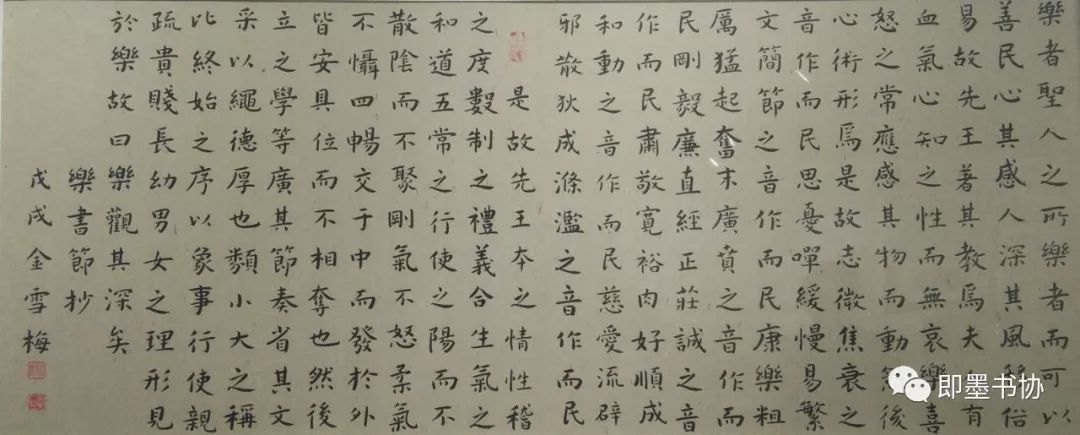 樂者聖人之所樂者而可以
善民心其感人深其風移俗
易故先王著其教焉夫人有
血氣心知之性而無哀樂喜
怒之常應感其物而動然後
心術形焉是故志微焦衰之
音作而民思憂嘽緩慢易繁
文簡節之音作而民康樂粗
厲猛起奮末廣賁之音作而
民剛毅廉直經正莊誠之音
作而民肅敬寬裕肉好順成
和動之音作而民慈愛流辟
邪散狄成滌濫之音作而民
是故先王本之情性稽
之度數制之禮義合生氣之
和道五常之行使之陽而不
散陰而不聚剛氣不怒柔氣
不懾四暢交于中而發於外
皆安其位而不相奪也然後
立之學等廣其節奏省其文
采以繩德厚也類小大之稱
比終始之序以象事行使親
疏貴賤長幼男女之理形見
於樂故曰樂觀其深矣
樂書節抄
戊戌金雪梅
即墨书协